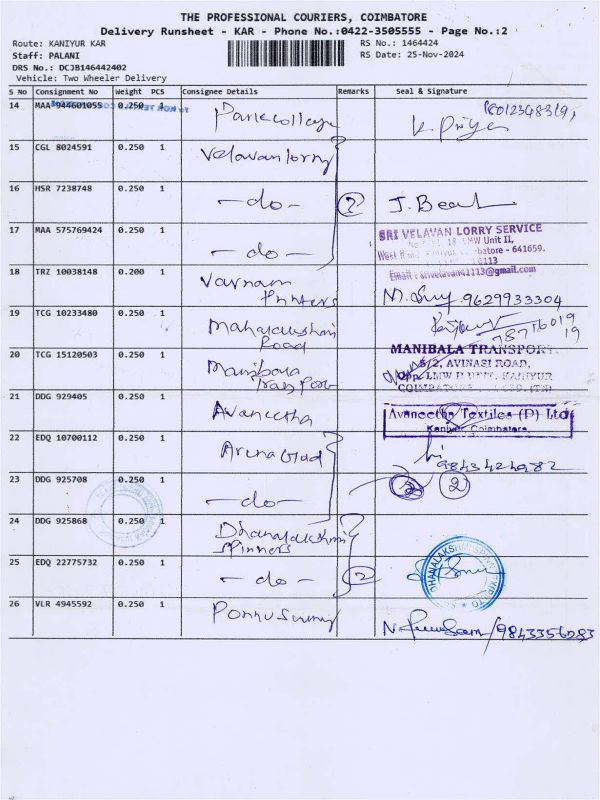 THE PROFESSIONAL COURIERS, COIMBATORE
Delivery Runsheet - KAR - Phone No.:0422-3505555 - Page No.:2
Route: KANIYUR KAR
RS No.: 1464424
Staff: PALANI
RS Date: 25-Nov-2024
DRS No.: DCJB146442402
Vehicle: Two Wheeler Delivery
S No Consignment No Weight PCS Consignee Details Remarks Seal & Signature
14 MAA 944601055 0.250 1 Park college
K. Priya
15 CGL 8024591 0.250 1 Velavan lorry
16 HSR 7238748 0.250 1 -do- 2 J.
17 MAA 575769424 0.250 1 -do-
SRI VELAVAN LORRY SERVICE
LMW Unit II,
641659.
Email: srivelavan41113@gmail.com
18 TRZ 10038148 0.200 1 Varnam
Printers
9629933304
19 TCG 10233480 0.250 1
Road
20 TCG 15120503 0.250 1 Manibala
Transport
MANIBALA TRANSPORT
5/2, AVINASI ROAD,
Opp. LMW II UNIT, KANIYUR
COIMBATORE
21 DDG 929405 0.250 1 Avaneetha
Avaneetha Textiles (P) Ltd
Kaniyur, Coimbatore.
22 EDQ 10700112 0.250 1
23 DDG 925708 0.250 1 -do- 2 2
24 DDG 925868 0.250 1 Dhanalakshmi
Spinners
25 EDQ 22775732 0.250 1 -do- 2
26 VLR 4945592 0.250 1 Ponnusamy
9843356283